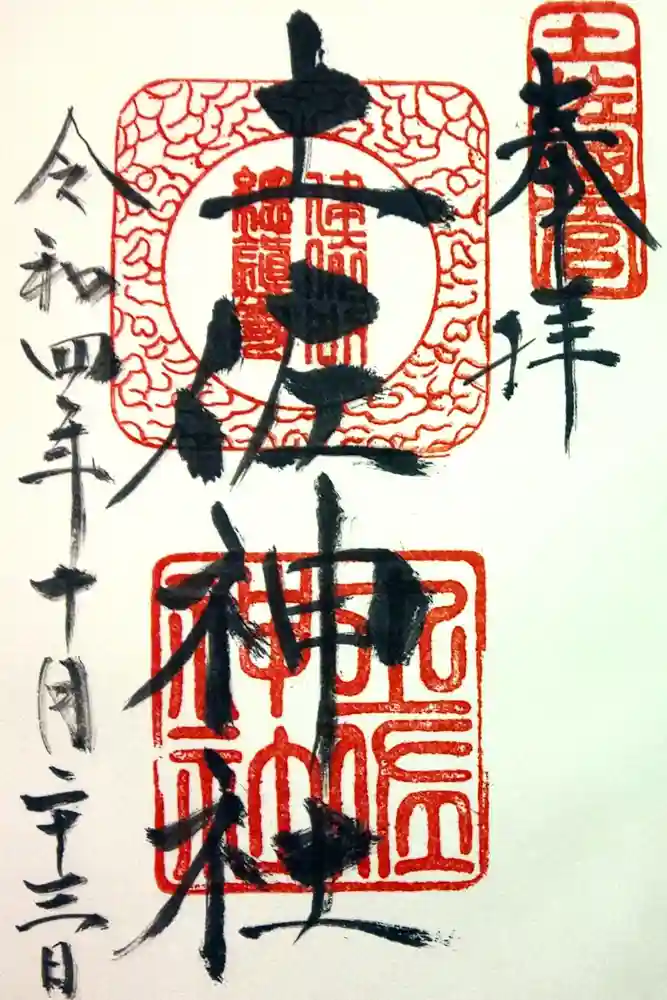 奉拝
土佐國一宮
土佐神社
令和四年十月二十三日